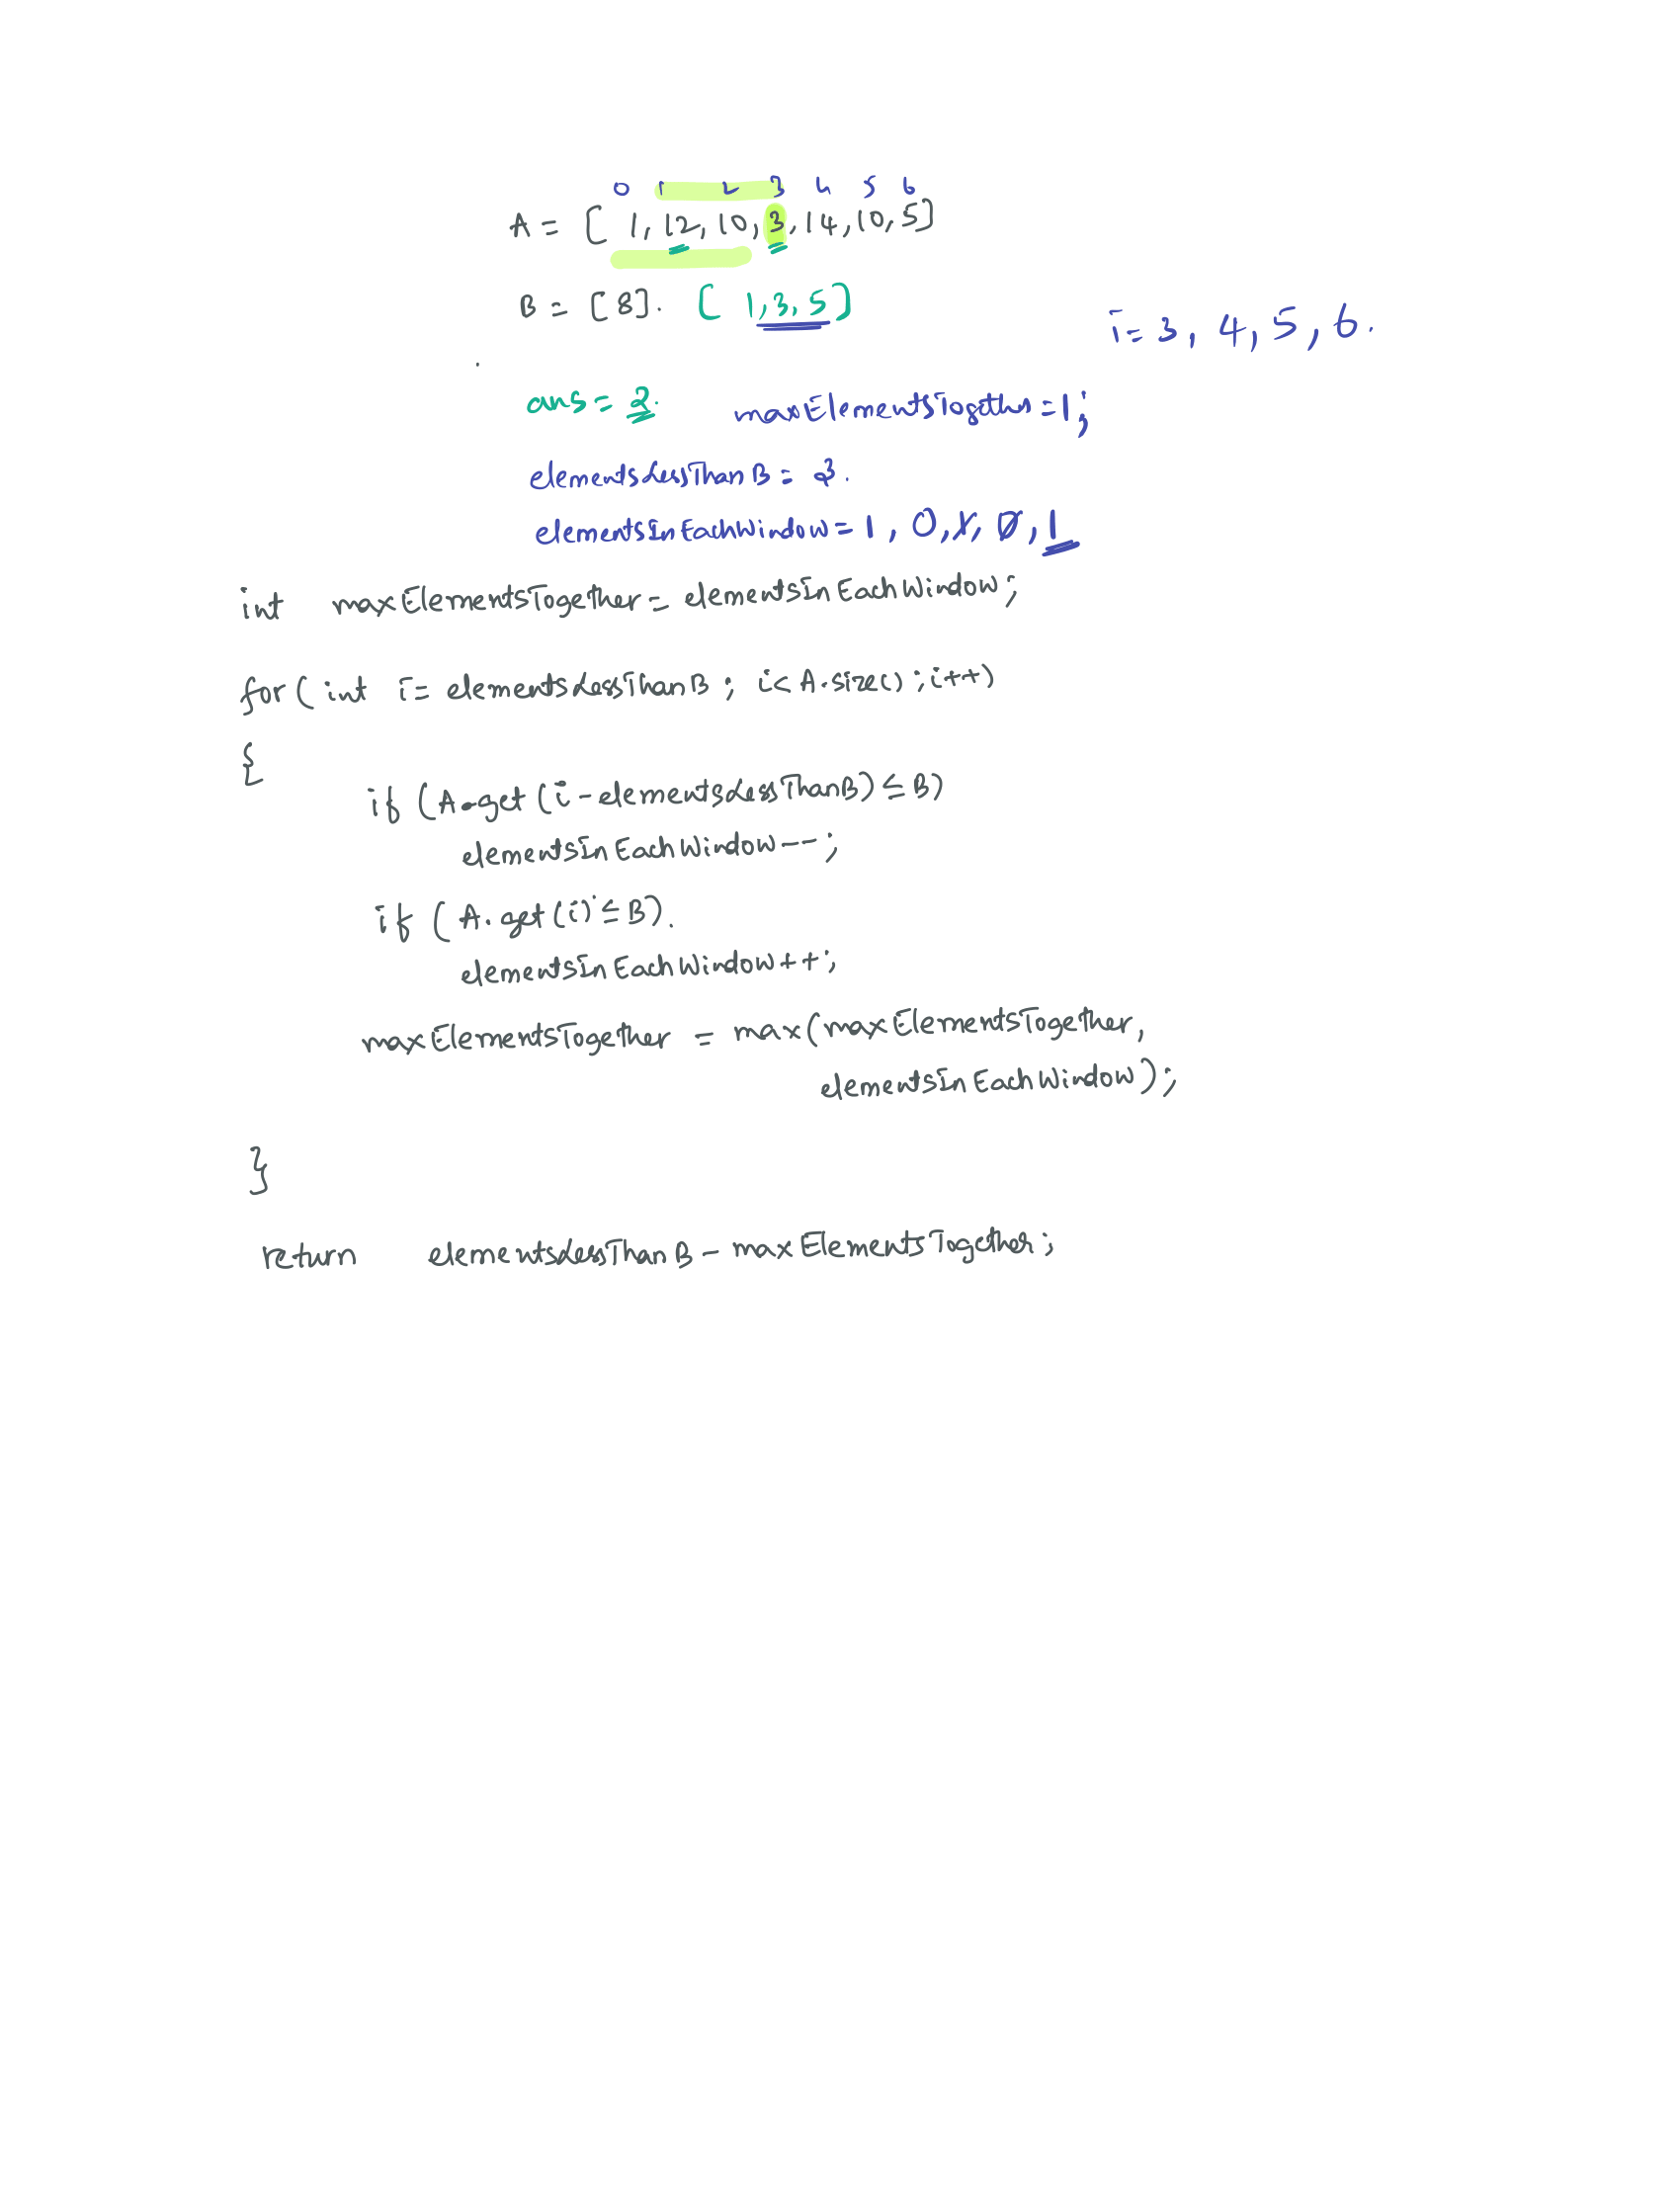 0 1 2 3 4 5 6
A = [ 1, 12, 10, 3, 14, 10, 5]
B = [8]. [ 1, 3, 5]
i= 3, 4, 5, 6.
ans = 2. maxElementsTogether = 1;
elementsLessThanB = 3.
elementsInEachWindow = 1, 0, 1, 0, 1
int maxElementsTogether = elementsInEachWindow;
for( int i= elementsLessThanB ; i< A.size() ; i++)
{
if (A.get (i - elementsLessThanB) ≤ B)
elementsInEachWindow--;
if ( A. get (i) ≤ B).
elementsInEachWindow++;
maxElementsTogether = max(maxElementsTogether,
elementsInEachWindow);
}
return elementsLessThanB - maxElementsTogether;